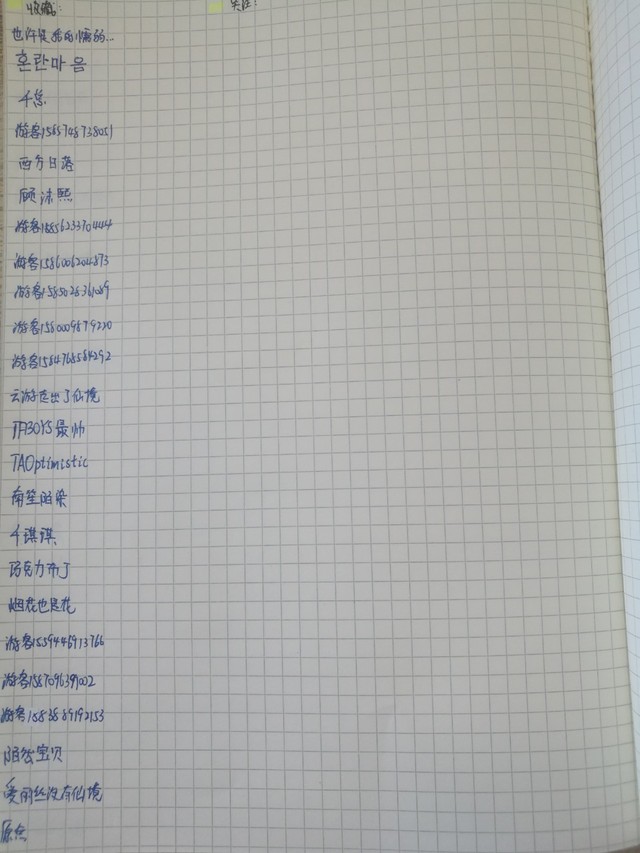 收藏: 关注:
也许是我的懵的...
혼란마음
千焦
游客1585748738051
西方日落
顾沫熙
游客1585623370444
游客1586006204873
游客1585028361089
游客1580009879220
游客1584768584292
云游走出了仙境
TFBOYS最帅
TAOptimistic
南笙陌染
千琪琪
巧克力布丁
烟花也是花
游客1539446913766
游客1587096391002
游客1583889192153
陌然宝贝
爱丽丝没有仙境